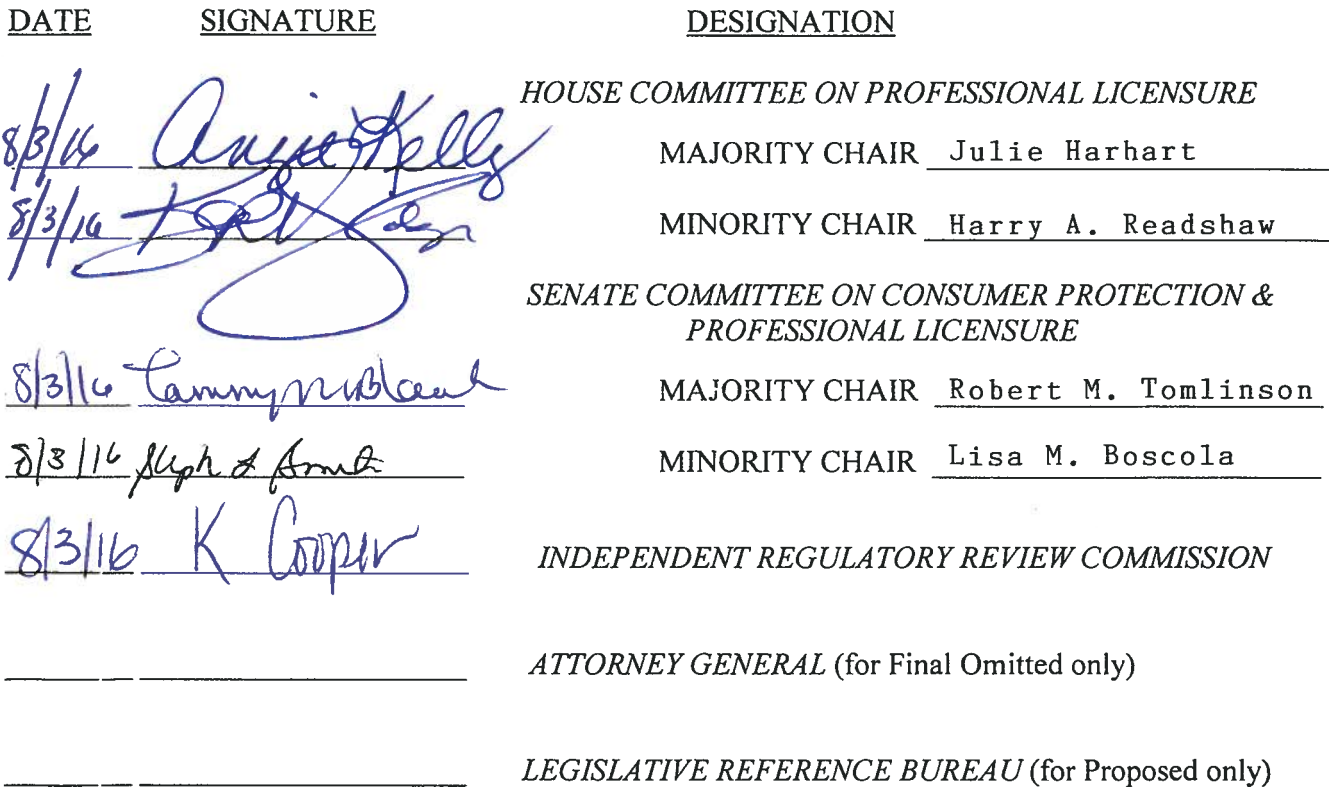 DATE SIGNATURE DESIGNATION
HOUSE COMMITTEE ON PROFESSIONAL LICENSURE
8/3/16 Angie Kelly MAJORITY CHAIR Julie Harhart
8/3/16 MINORITY CHAIR Harry A. Readshaw
SENATE COMMITTEE ON CONSUMER PROTECTION &
PROFESSIONAL LICENSURE
8/3/16 Tammy MAJORITY CHAIR Robert M. Tomlinson
8/3/16 MINORITY CHAIR Lisa M. Boscola
8/3/16 K Cooper INDEPENDENT REGULATORY REVIEW COMMISSION
ATTORNEY GENERAL (for Final Omitted only)
LEGISLATIVE REFERENCE BUREAU (for Proposed only)